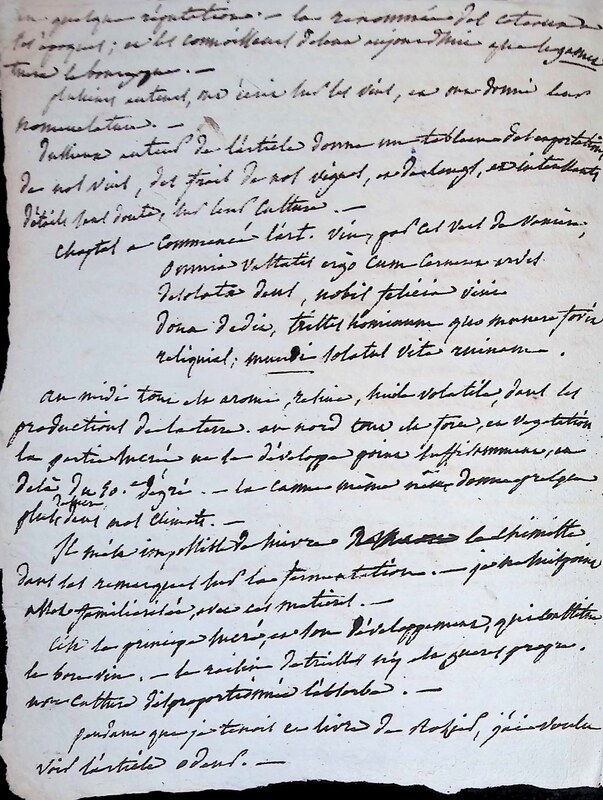 quelque réputation. - la renommée des coteaux
les époques; et les connoisseurs
bourgogne. -
plusieurs auteurs, ont écrit sur les vins, et ont donné leur
nomenclature. -
auteur de l'article donne un tableau des exportations
de nos vins, des frais de nos vignes, et intéressants
détails sans doute, sur leur culture. -
chaptal a commencé l'art. vin, par ces vers de Vaniere,
omnia vastatis ergo cum cerneret arvis
desolata deus, nobis felicia vini
dona dedit, tristes hominum quo munere fovit
reliquias; mundi solatus vite ruinam.
au midi tout est arome, resine, huile volatile, dans les
productions de la terre. au nord tout est force, et végétation
la partie sucrée ne se développe point suffisamment, au
delà du 50.e dégré. - la canne même donne
plus dans nos climats. -
Il m'est impossible de suivre le chimiste
dans ses remarques sur la fermentation. - je ne suis point
assez familiarisée, avec ces matieres. -
C'est le principe sucré, et son développement, qui constitue
le bon vin. - le raisin de treilles n'y est gueres propre.
une culture disproportionnée l'absorbe. -
pendant que je tenois ce livre de Rozier, j'ai voulu
voir l'article odeur. -